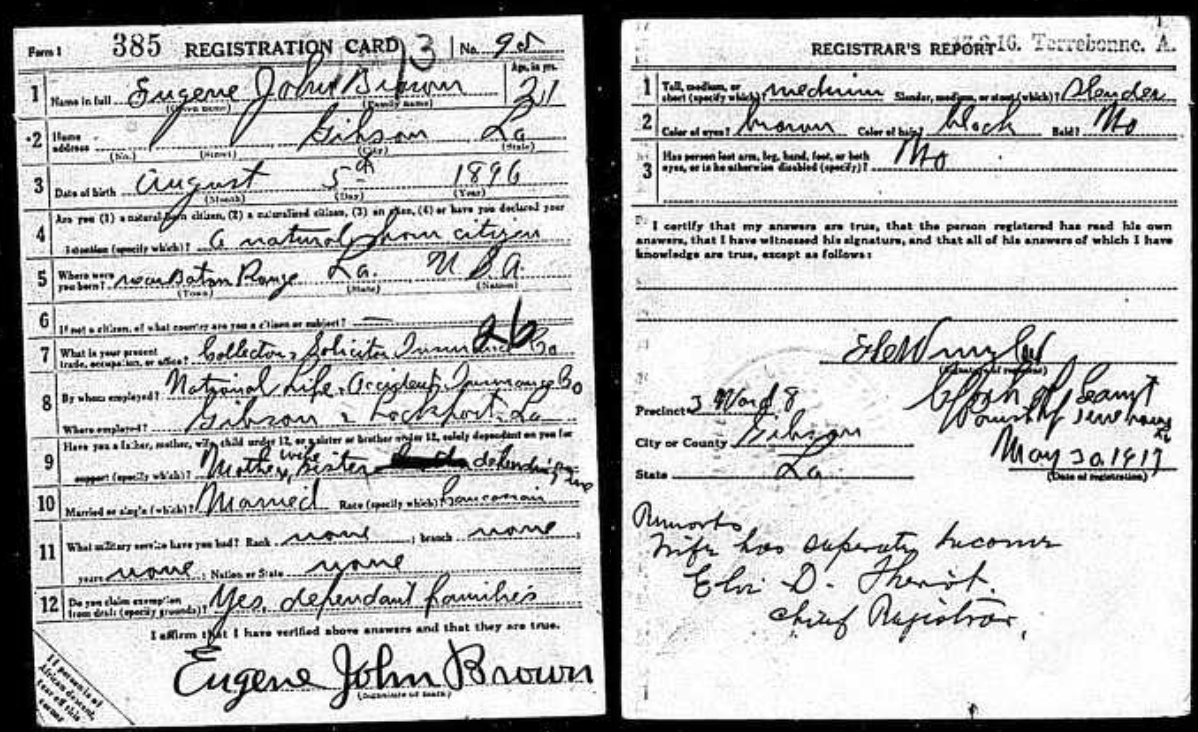 Form 1 385 REGISTRATION CARD No.
Age, in yrs.
1 Name in full Eugene John Brown 21
(Given name) (Family name)
2 Home address Gibson La
(No.) (Street) (City) (State)
3 Date of birth August 5th 1896
(Month) (Day) (Year)
4 Are you (1) a natural born citizen, (2) a naturalized citizen, (3) an alien, (4) or have you declared your
intention (specify which)? a natural born citizen
5 Where were you born? near Baton Rouge La. U.S.A.
(Town) (State) (Nation)
6 If not a citizen, of what country are you a citizen or subject? —
26
7 What is your present trade, occupation, or office? Collector & Solicitor Insurance Co
8 By whom employed? National Life & Accident Insurance Co
Where employed? Gibson & Lockport La
9 Have you a father, mother, wife, child under 12, or a sister or brother under 12, solely dependent on you for
support (specify which)? Mother, wife, sister
10 Married or single (which)? Married Race (specify which)? Caucasian
11 What military service have you had? Rank none ; branch none ;
years none ; Nation or State none
12 Do you claim exemption from draft (specify grounds)? Yes. dependant families
I affirm that I have verified above answers and that they are true.
Eugene John Brown
(Signature or mark)
If person is of African descent, tear off this corner
REGISTRAR'S REPORT 16. Terrebonne. A.
1 Tall, medium, or short (specify which)? medium Slender, medium, or stout (which)? Slender
2 Color of eyes? brown Color of hair? black Bald? No
3 Has person lost arm, leg, hand, foot, or both eyes, or is he otherwise disabled (specify)? No
I certify that my answers are true, that the person registered has read his own
answers, that I have witnessed his signature, and that all of his answers of which I have
knowledge are true, except as follows:
(Signature of registrar)
Precinct 3 Ward 8
City or County Gibson
State La
Clerk of Court
Parish of
May 30, 1917
(Date of registration)
Remarks
Wife has separate income
D. Theriot.
Chief Registrar,